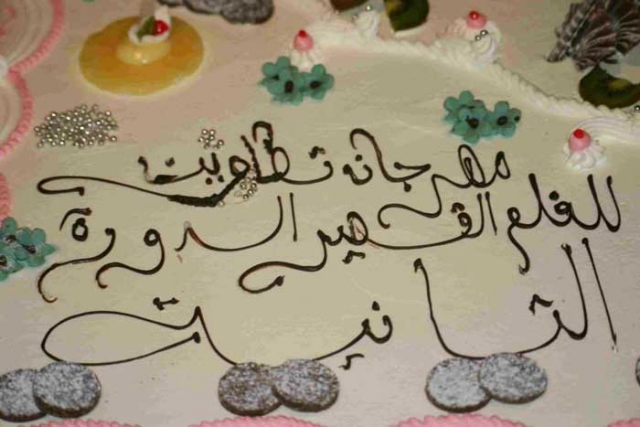 مهرجان تطاوين
للفلم القصير الدورة
الثانية